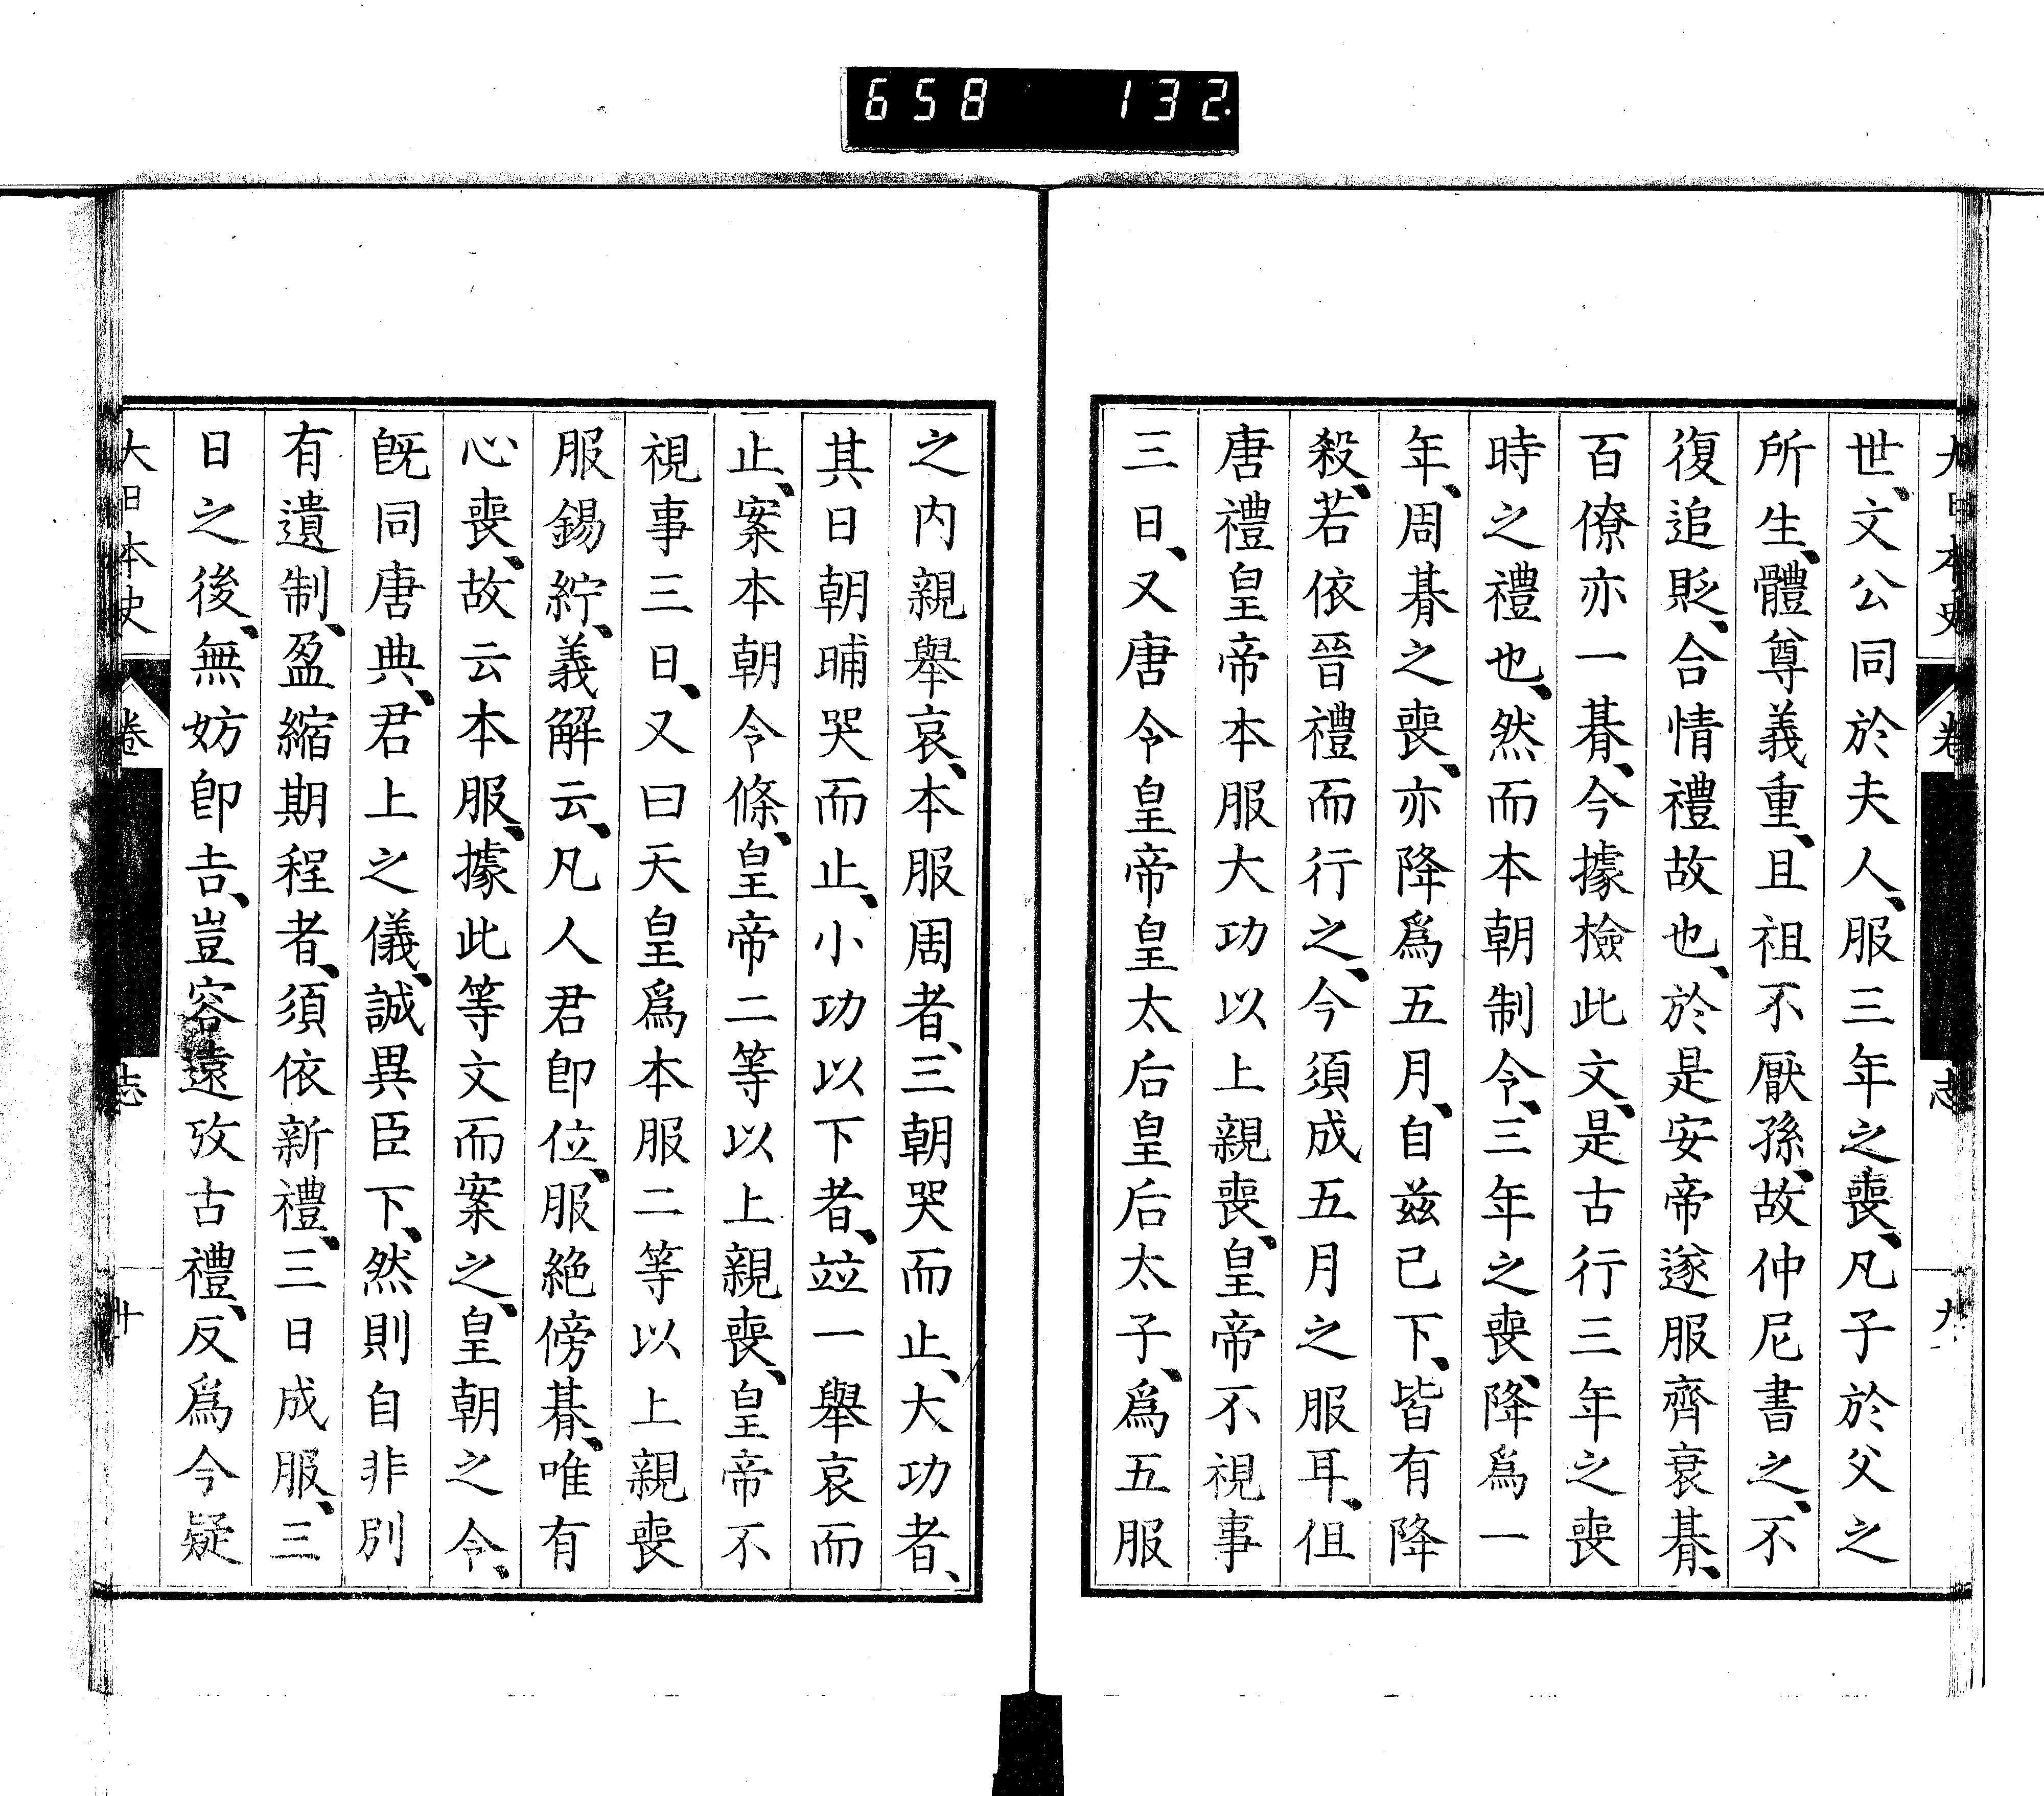 658 132
大日本史 卷 志 九
世、文公同於夫人、服三年之喪、凡子於父之
所生、體尊義重、且祖不厭孫、故仲尼書之、不
復追貶、合情禮故也、於是安帝遂服齊衰朞、
百僚亦一朞、今據檢此文、是古行三年之喪
時之禮也、然而本朝制令、三年之喪、降爲一
年、周朞之喪、亦降爲五月、自茲已下、皆有降
殺、若依晉禮而行之、今須成五月之服耳、伹
唐禮皇帝本服大功以上親喪、皇帝不視事
三日、又唐令皇帝皇太后皇后太子、爲五服
之内親舉哀、本服周者、三朝哭而止、大功者、
其日朝晡哭而止、小功以下者、竝一舉哀而
止、案本朝令條、皇帝二等以上親喪、皇帝不
視事三日、又曰天皇爲本服二等以上親喪
服錫紵、義解云、凡人君卽位、服絶傍朞、唯有
心喪、故云本服、據此等文而案之、皇朝之令、
旣同唐典、君上之儀、誠異臣下、然則自非別
有遺制、盈縮期程者、須依新禮、三日成服、三
日之後、無妨卽吉、豈容遠攷古禮、反爲今疑
大日本史 卷 志 十